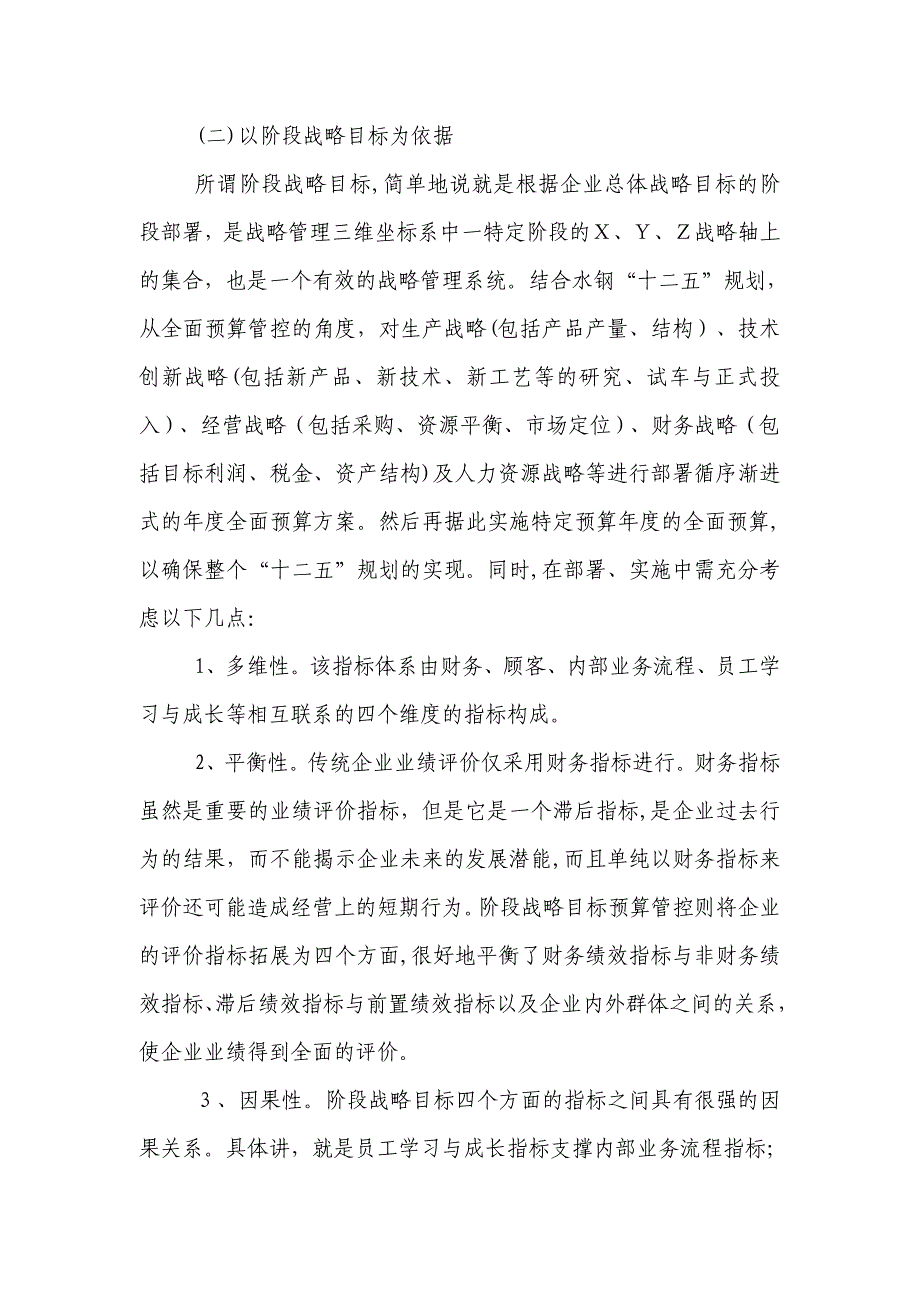 (二)以阶段战略目标为依据
所谓阶段战略目标,简单地说就是根据企业总体战略目标的阶
段部署，是战略管理三维坐标系中一特定阶段的Ｘ、Ｙ、Ｚ战略轴上
的集合，也是一个有效的战略管理系统。结合水钢“十二五”规划，
从全面预算管控的角度，对生产战略(包括产品产量、结构）、技术
创新战略(包括新产品、新技术、新工艺等的研究、试车与正式投
入)、经营战略（包括采购、资源平衡、市场定位)、财务战略（包
括目标利润、税金、资产结构)及人力资源战略等进行部署循序渐进
式的年度全面预算方案。然后再据此实施特定预算年度的全面预算,
以确保整个“十二五”规划的实现。同时,在部署、实施中需充分考
虑以下几点:
1、多维性。该指标体系由财务、顾客、内部业务流程、员工学
习与成长等相互联系的四个维度的指标构成。
2、平衡性。传统企业业绩评价仅采用财务指标进行。财务指标
虽然是重要的业绩评价指标，但是它是一个滞后指标,是企业过去行
为的结果，而不能揭示企业未来的发展潜能,而且单纯以财务指标来
评价还可能造成经营上的短期行为。阶段战略目标预算管控则将企业
的评价指标拓展为四个方面,很好地平衡了财务绩效指标与非财务绩
效指标、滞后绩效指标与前置绩效指标以及企业内外群体之间的关系，
使企业业绩得到全面的评价。
３、因果性。阶段战略目标四个方面的指标之间具有很强的因
果关系。具体讲，就是员工学习与成长指标支撑内部业务流程指标;